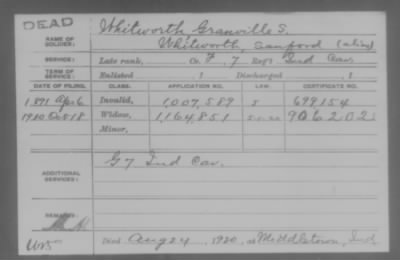 DEAD
NAME OF SOLDIER:
Whitworth Granville S.
Whitworth, Sanford (alias)
SERVICE:
Late rank, Co. F, 7 Reg't Ind Cav.
TERM OF SERVICE:
Enlisted , 1 Discharged , 1
DATE OF FILING. CLASS. APPLICATION NO. LAW. CERTIFICATE NO.
1891 Apr 6 Invalid, 1,007,589 699154
1920 Oct 18 Widow, 1,164,851 906202
Minor,
ADDITIONAL SERVICES:
G 7 Ind Cav.
REMARKS:
Died Aug 24, 1920, at Middletown, Ind